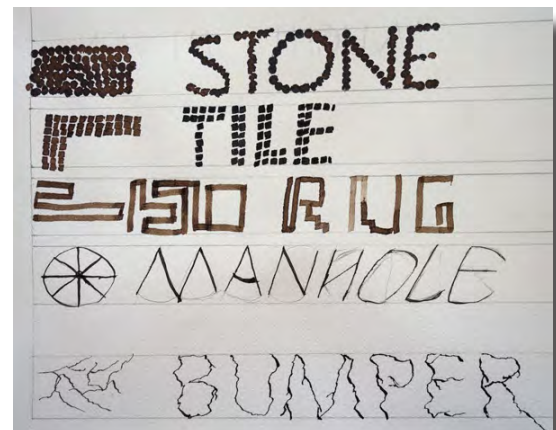 STONE
TILE
MANHOLE
BUMPER